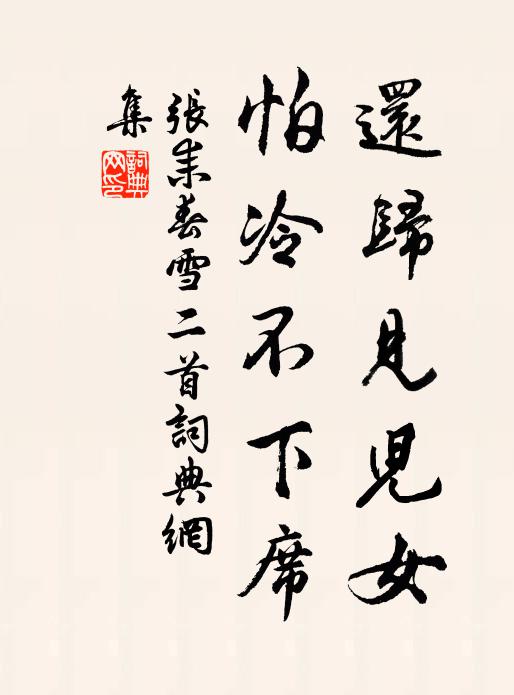 還歸見兒女
怕冷不下席
張耒春雪二首詞典網
集
詞典
网印